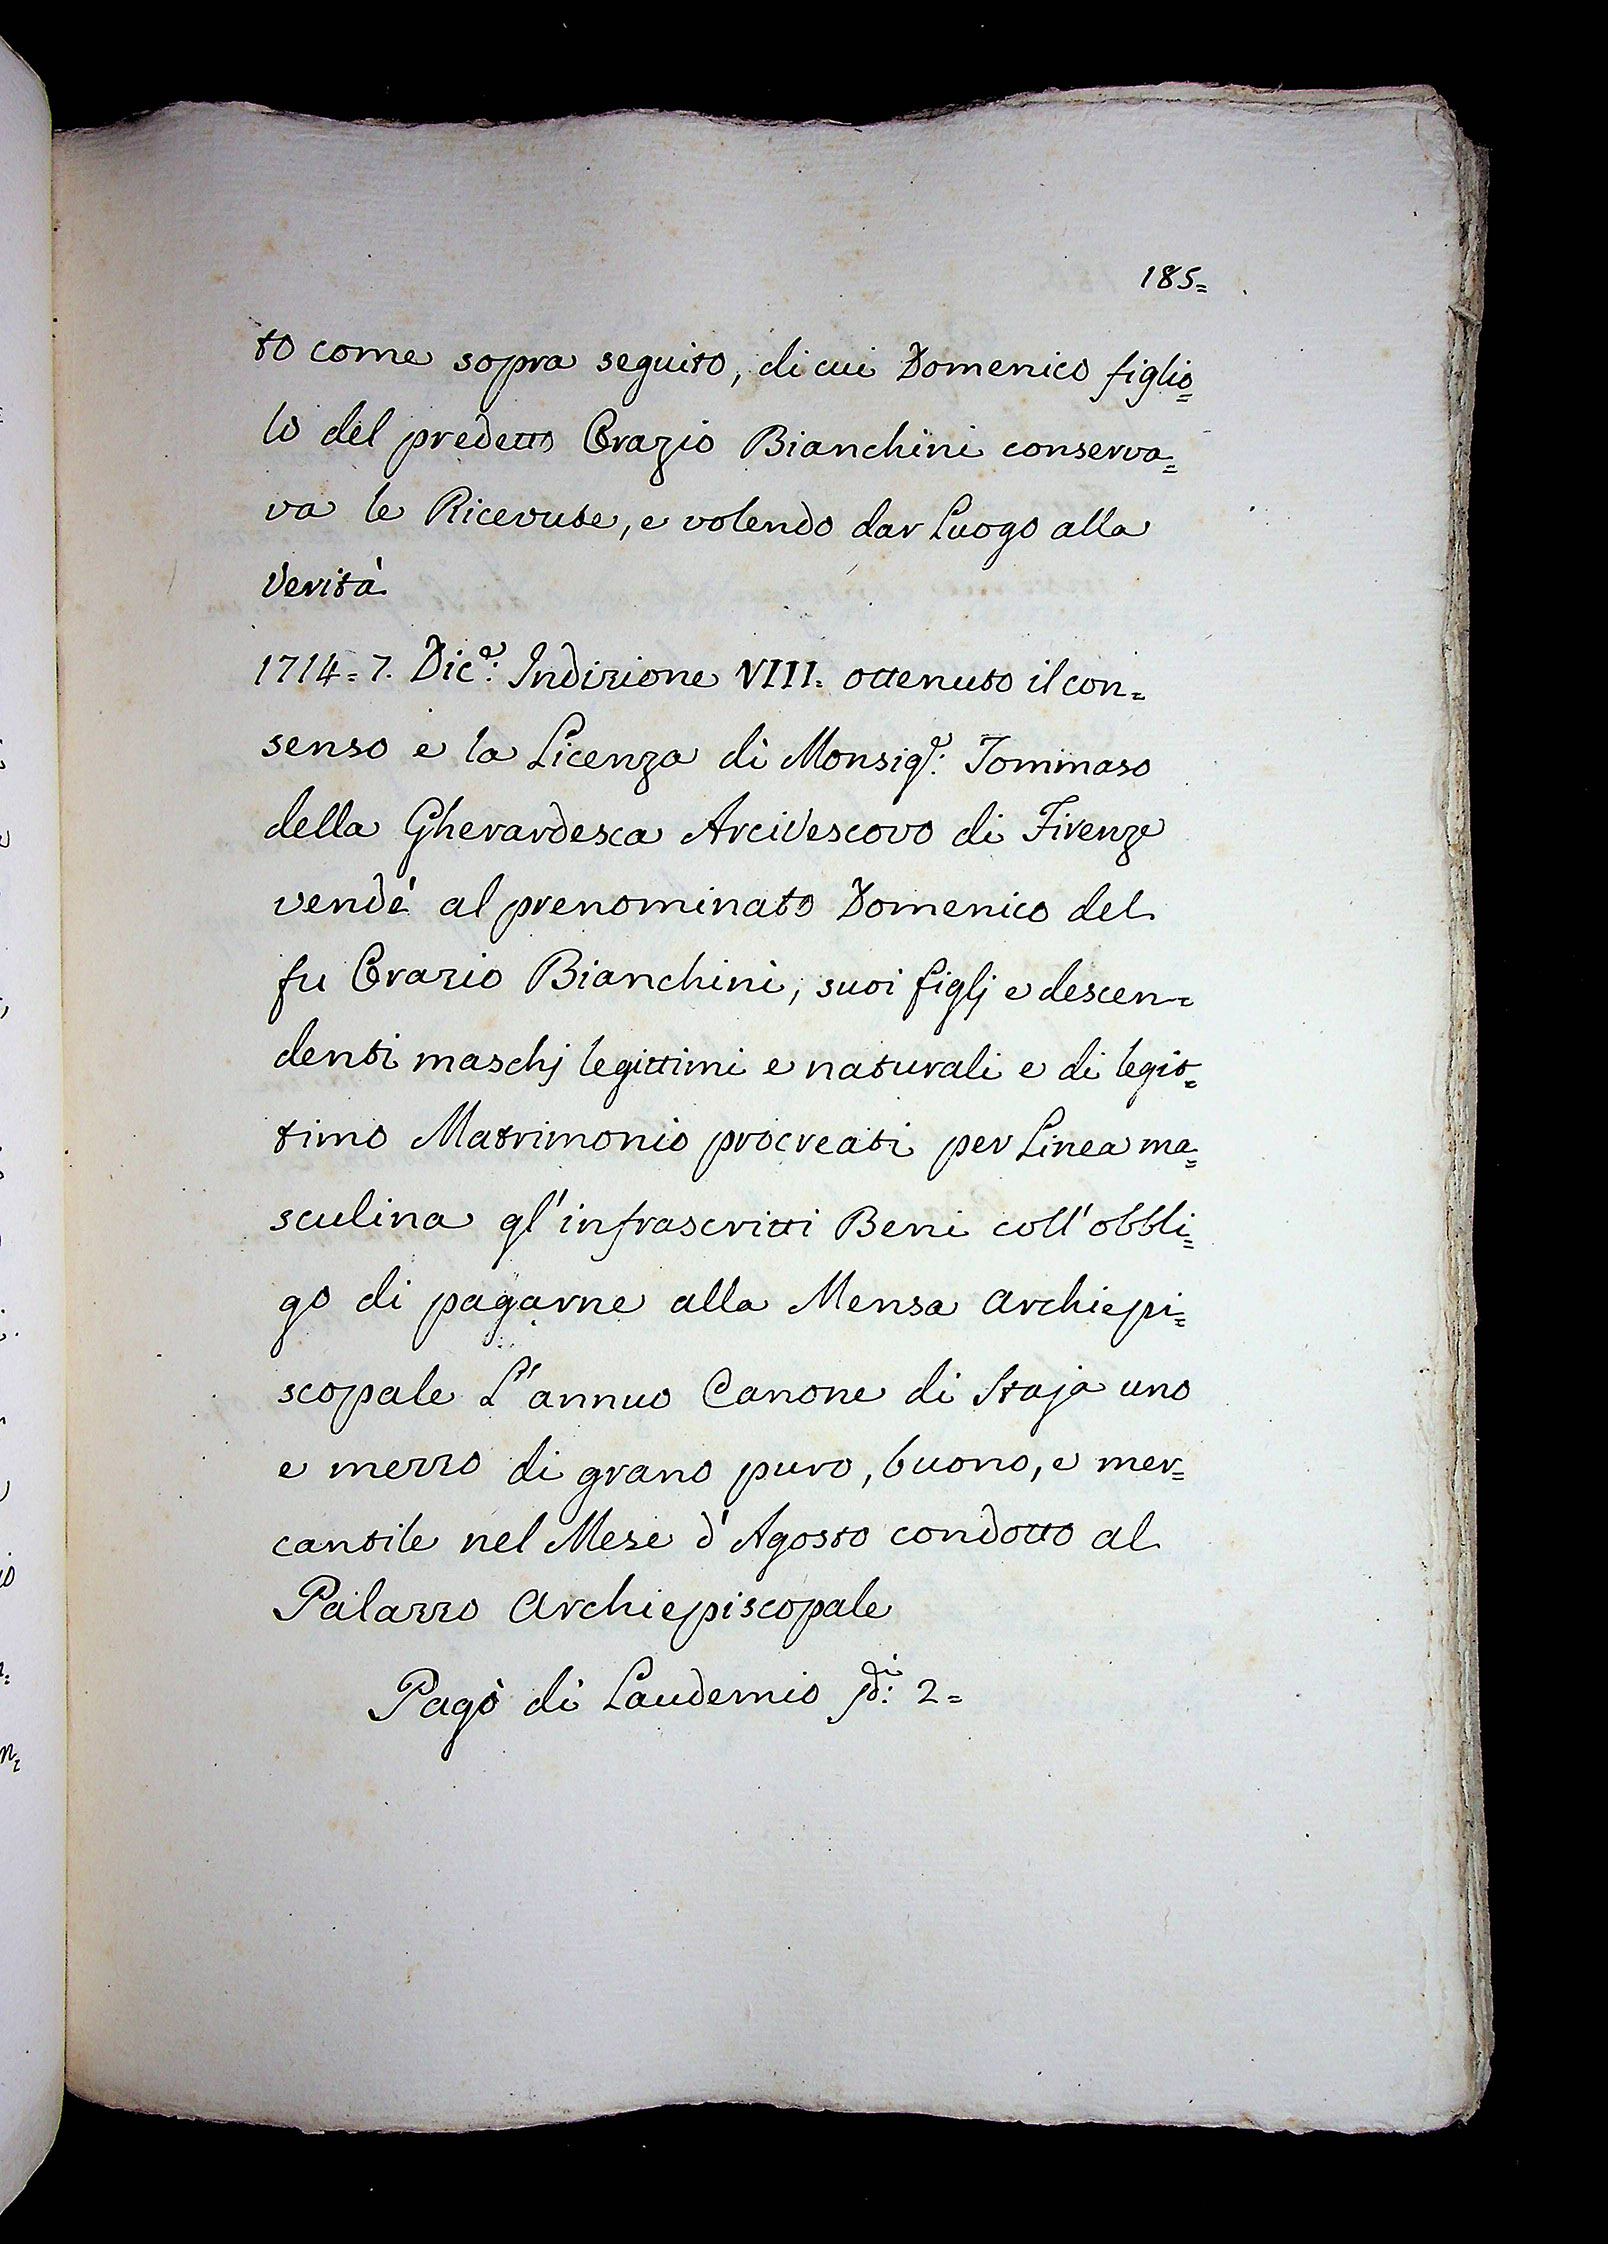 185=
to come sopra seguito, di cui Domenico figlio=
lo del predetto Orazio Bianchini conserva=
va le Ricevute, e volendo dar Luogo alla
Verità
1714=7. Dic.e: Indizione VIII. ottenuto il con=
senso e la Licenza di Monsig.r: Tommaso
della Gherardesca Arcivescovo di Firenze
vendé al prenominato Domenico del
fu Orazio Bianchini, suoi figlj e descen=
denti maschj legittimi e naturali e di legit=
timo Matrimonio procreati per Linea ma=
sculina gl'infrascritti Beni coll'obbli=
go di pagarne alla Mensa Archiepi=
scopale L'annuo Canone di Staja uno
e mezzo di grano puro, buono, e mer=
cantile nel Mese d'Agosto condotto al
Palazzo Archiepiscopale
Pagò di Laudemio 2=